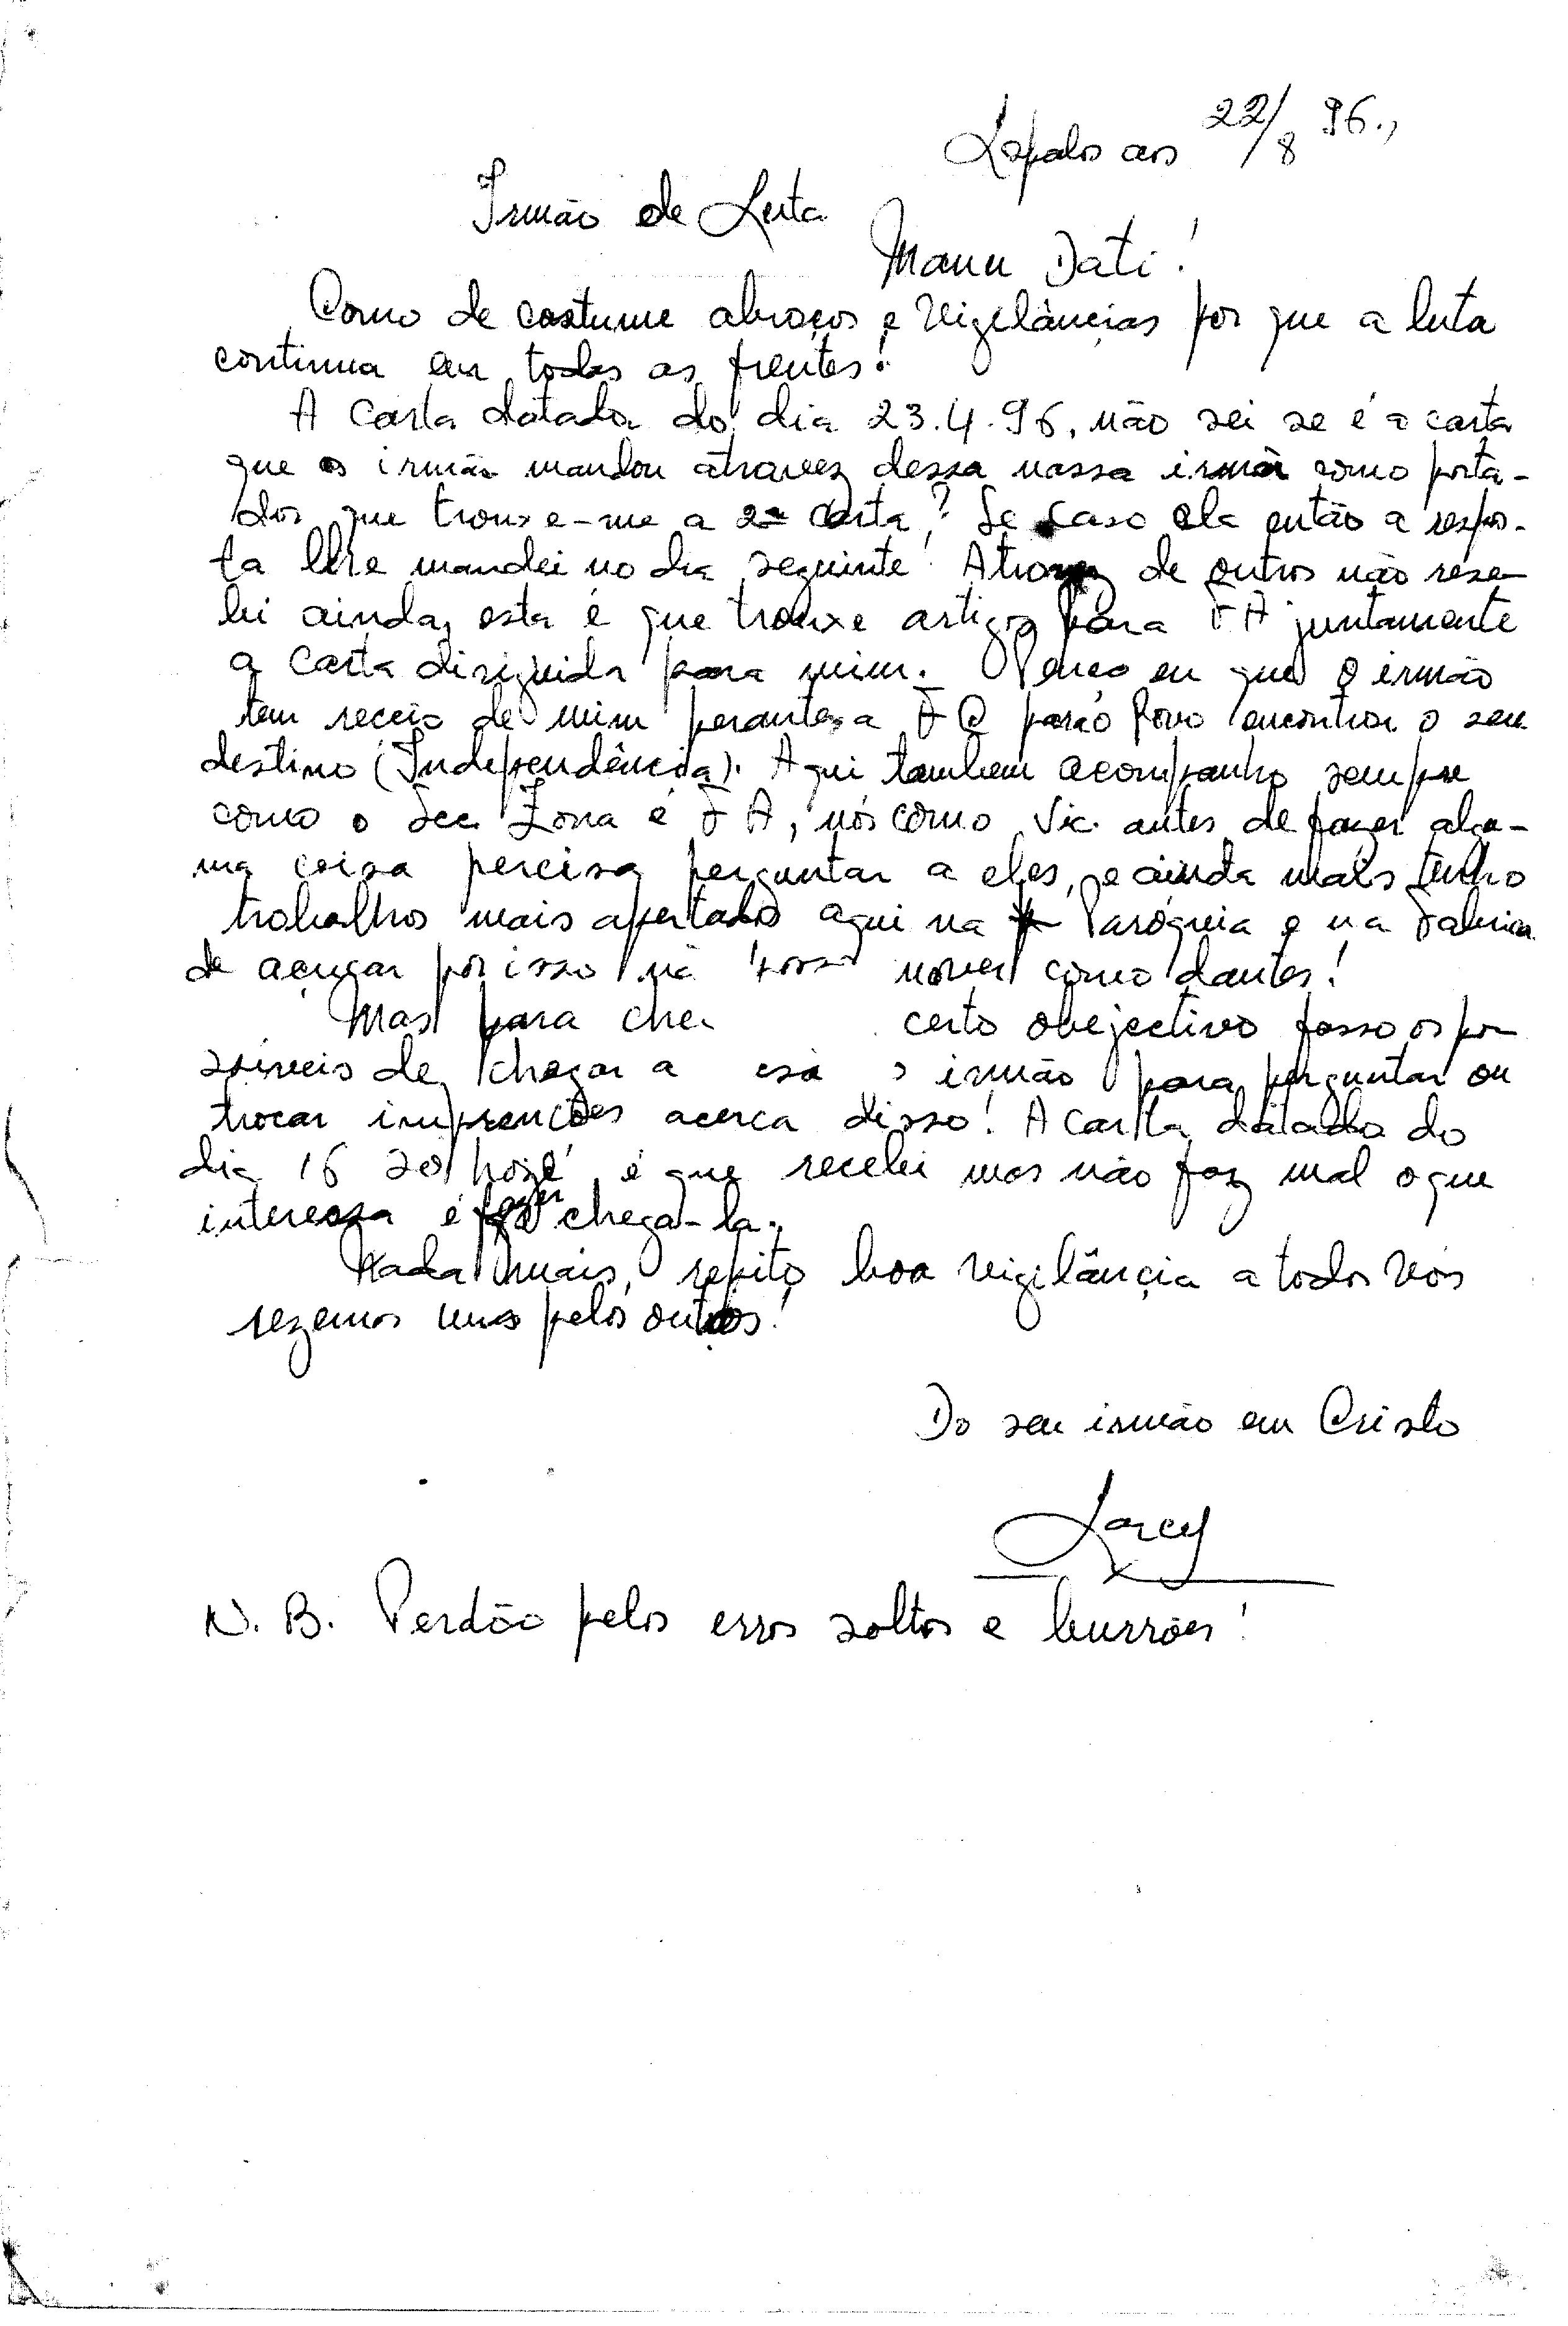 Lospalos aos 22/8 96.,
Irmão de Luta
Manu Dati!
Como de costume abraços e Vigelâncias por que a luta
continua em todas as frentes!
A Carta datada do dia 23.4.96, não sei se é a carta
que o irmão mandou atravez dessa nossa irmã como porta-
dor que trouxe-me a 2ª carta? Se caso ela então a respos-
ta lhe mandei no dia seguinte! Atravez de outros não rese-
bi ainda, esta é que trouxe artigos para FA juntamente
a Carta diriguida para mim. Penso eu que o irmão
tem receio de mim perante a para o Povo encontrar o seu
destino (Independência). Aqui tambem acompanho sempre
como o Sec. Zona e FA, nós como Vic. antes de fazer algu-
ma coisa percisa perguntar a eles, e ainda mais tenho
trabalhos mais apertados aqui na Paróquia e na Fabrica
de açucar por isso posso mover como dantes!
Mas para certo obejectivo fasso os po-
ssiveis de chegar a irmão para perguntar ou
trocar imprenções acerca disso! A Carta datada do
dia 16 só hoje é que recebi mas não faz mal o que
interessa é fazer chega-la.
Nada mais, repito boa vigilância a todos vós
rezemos uns pelos outros!
Do seu irmão em Cristo
Larcy
N. B. Perdão pelos erros soltos e burrões!